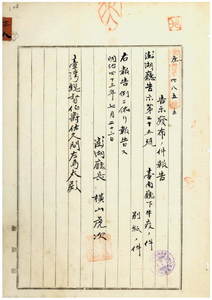 告示發布ノ件報告
澎湖廳告示第三十五號 臺南廳下牛疫ノ件
別紙ノ件
右報告例ニ依リ報告ス
明治四十三年七月二十二日
澎湖廳長 橫山虎次
臺灣總督伯爵佐久間左馬太殿